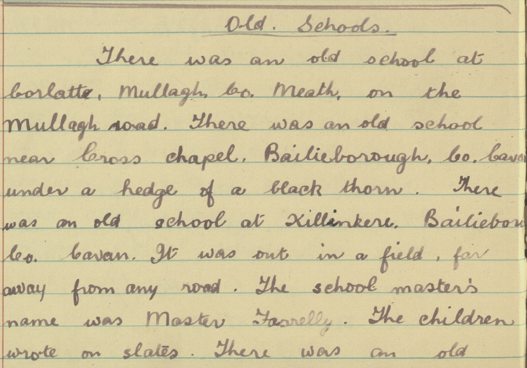 Old. Schools.
There was an old school at
Corlatte, Mullagh, Co. Meath, on the
Mullagh road. There was an old school
near Cross chapel, Bailieborough, Co. Cavan
under a hedge of a black thorn. There
was an old school at Killinkere, Bailiebor
Co. Cavan. It was out in a field, far
away from any road. The school master's
name was Master Farrelly. The children
wrote on slates. There was an old